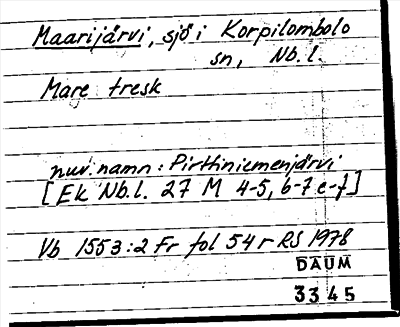 Maarijärvi, sjö i Korpilombolo
sn, Nb.l.
Mare tresk
nuv. namn: Pirttiniemenjärvi
[Ek Nb.l. 27 M 4-5, 6-7 e-f]
Vb 1553:2 Fr fol 54 r RS 1978
DAUM
3345